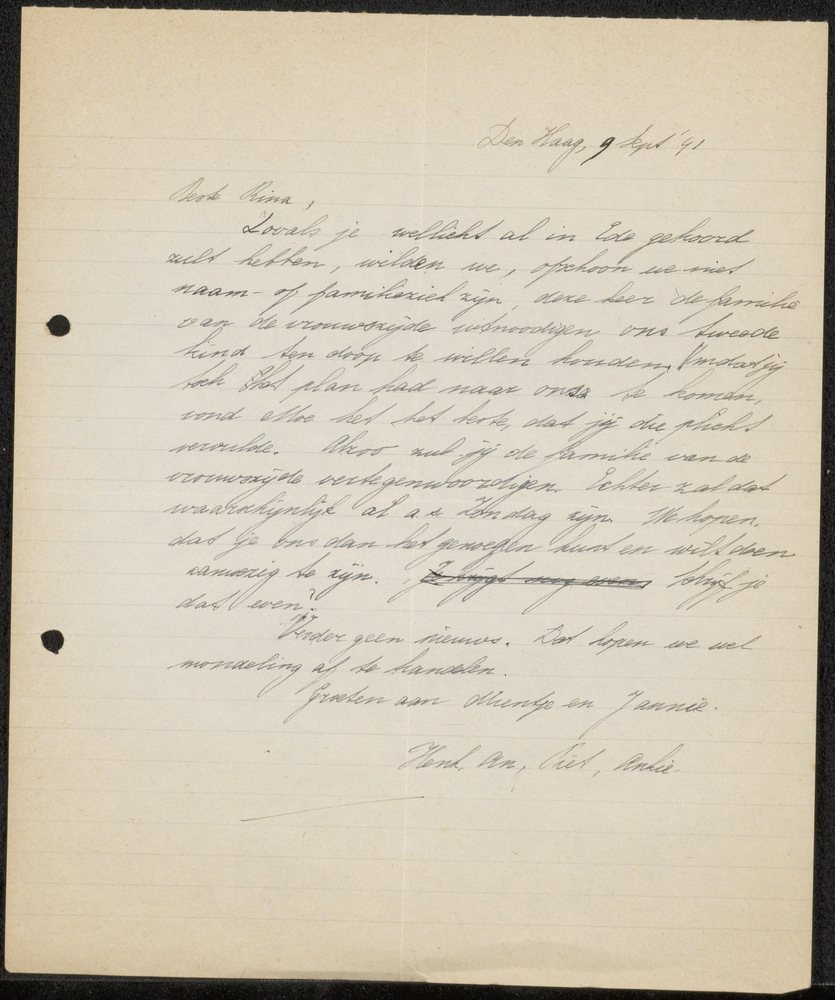 Den Haag, 9 Sept '41
Beste Rina,
Zooals je wellicht al in Ede gehoord
zult hebben, wilden we, ofschoon we niet
naam- of familieziek zijn, deze keer de familie
van de vrouwszijde uitnoodigen ons tweede
kind ten doop te willen houden. Omdat jij
toch het plan had naar ons te komen,
vond Moe het het beste, dat jij die plicht
vervulde. Alzoo zul jij de familie van de
vrouwszijde vertegenwoordigen. Echter zal dat
waarschijnlijk al a.s. Zondag zijn. We hopen,
dat je ons dan het genoegen kunt en wilt doen
aanwezig te zijn. Je krijgt nog even Schrijf je
dat even?
Verder geen nieuws. Dat hopen we wel
mondeling af te handelen.
Groeten aan Mientje en Jannie.
Henk, An, Piet, Ankie.